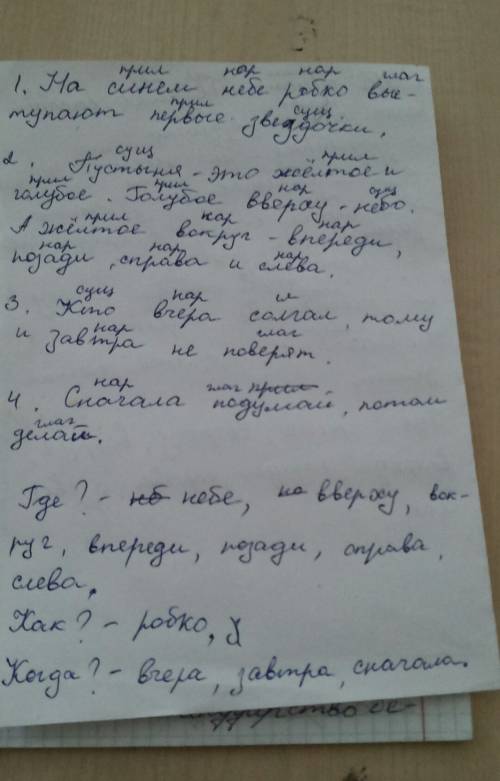 прил нар нар глаг
1. На синем небе робко выс-
прил сущ
тупают первые звездочки.
сущ прил
2. Пустыня - это жёлтое и
прил прил нар сущ
голубое. Голубое вверху - небо.
прил нар нар
А жёлтое вокруг - впереди,
нар нар нар
позади, справа и слева.
сущ нар
3. Кто вчера солгал, тому
нар глаг
и завтра не поверят.
нар глаг прил
4. Сначала подумай, потом
глаг
делай.
Где? - нб небе, но вверху, вок-
руг, впереди, позади, справа,
слева,
Как? - робко, у
Когда? - вчера, завтра, сначала.